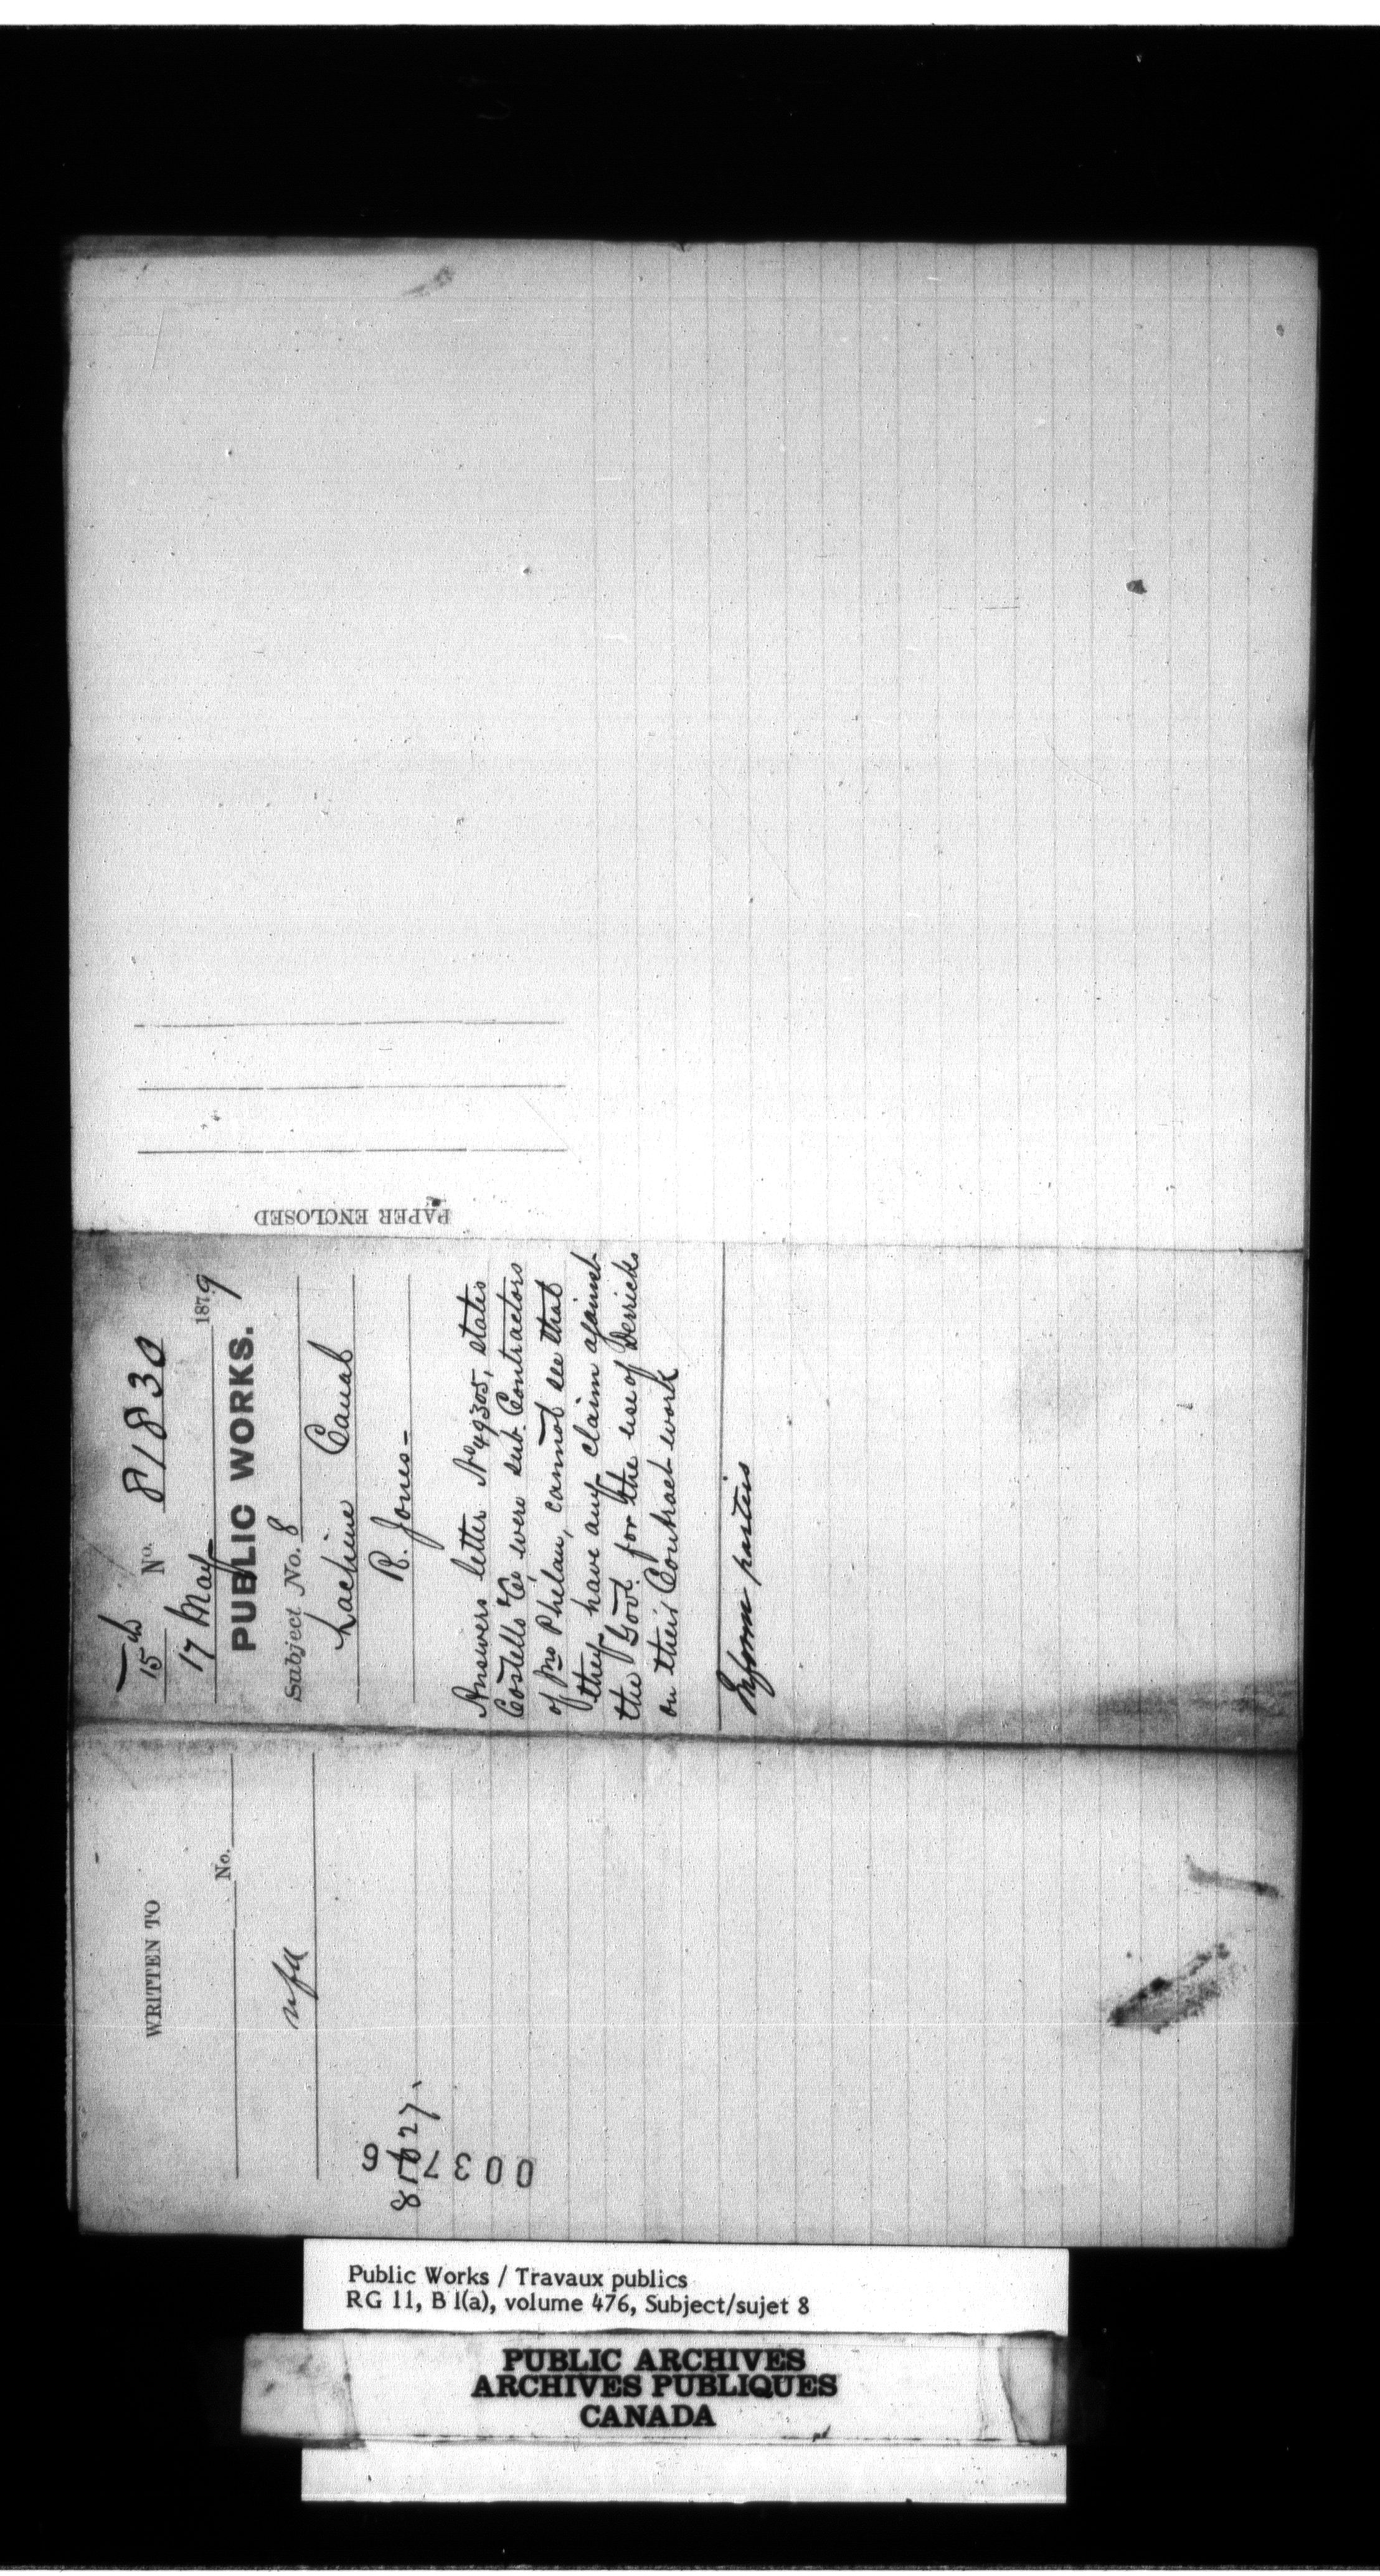 PAPER ENCLOSED
15th No. 81830
17 May 1879
PUBLIC WORKS.
Subject No. 8
Lachine Canal
R. Jones-
Answers letter No 49305, states
Costello & Co were sub. Contractors
of Mr Phelan, cannot see that
they have any claim against
the Govt. for the use of Derricks
on their Contract work
Inform parties
WRITTEN TO
No.
nfa
00376
Public Works / Travaux publics
RG 11, B 1(a), volume 476, Subject/sujet 8
PUBLIC ARCHIVES
ARCHIVES PUBLIQUES
CANADA